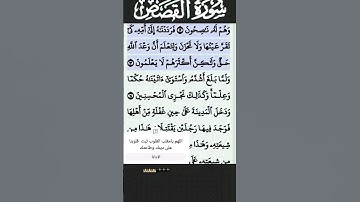 سُورَةُ الْقَصَصِ
وَهُمْ لَهُ نَاصِحُونَ ۝ فَرَدَدْنَاهُ إِلَىٰ أُمِّهِ كَيْ
تَقَرَّ عَيْنُهَا وَلَا تَحْزَنَ وَلِتَعْلَمَ أَنَّ وَعْدَ اللَّهِ
حَقٌّ وَلَٰكِنَّ أَكْثَرَهُمْ لَا يَعْلَمُونَ ۝
وَلَمَّا بَلَغَ أَشُدَّهُ وَاسْتَوَىٰ ءَاتَيْنَاهُ حُكْمًا
وَعِلْمًا وَكَذَٰلِكَ نَجْزِي الْمُحْسِنِينَ ۝
وَدَخَلَ الْمَدِينَةَ عَلَىٰ حِينِ غَفْلَةٍ مِّنْ أَهْلِهَا
فَوَجَدَ فِيهَا رَجُلَيْنِ يَقْتَتِلَانِ هَٰذَا مِن
شِيعَتِهِ وَهَٰذَا
اللهم يا مقلب القلوب ثبت قلوبنا
على دينك وطاعتك